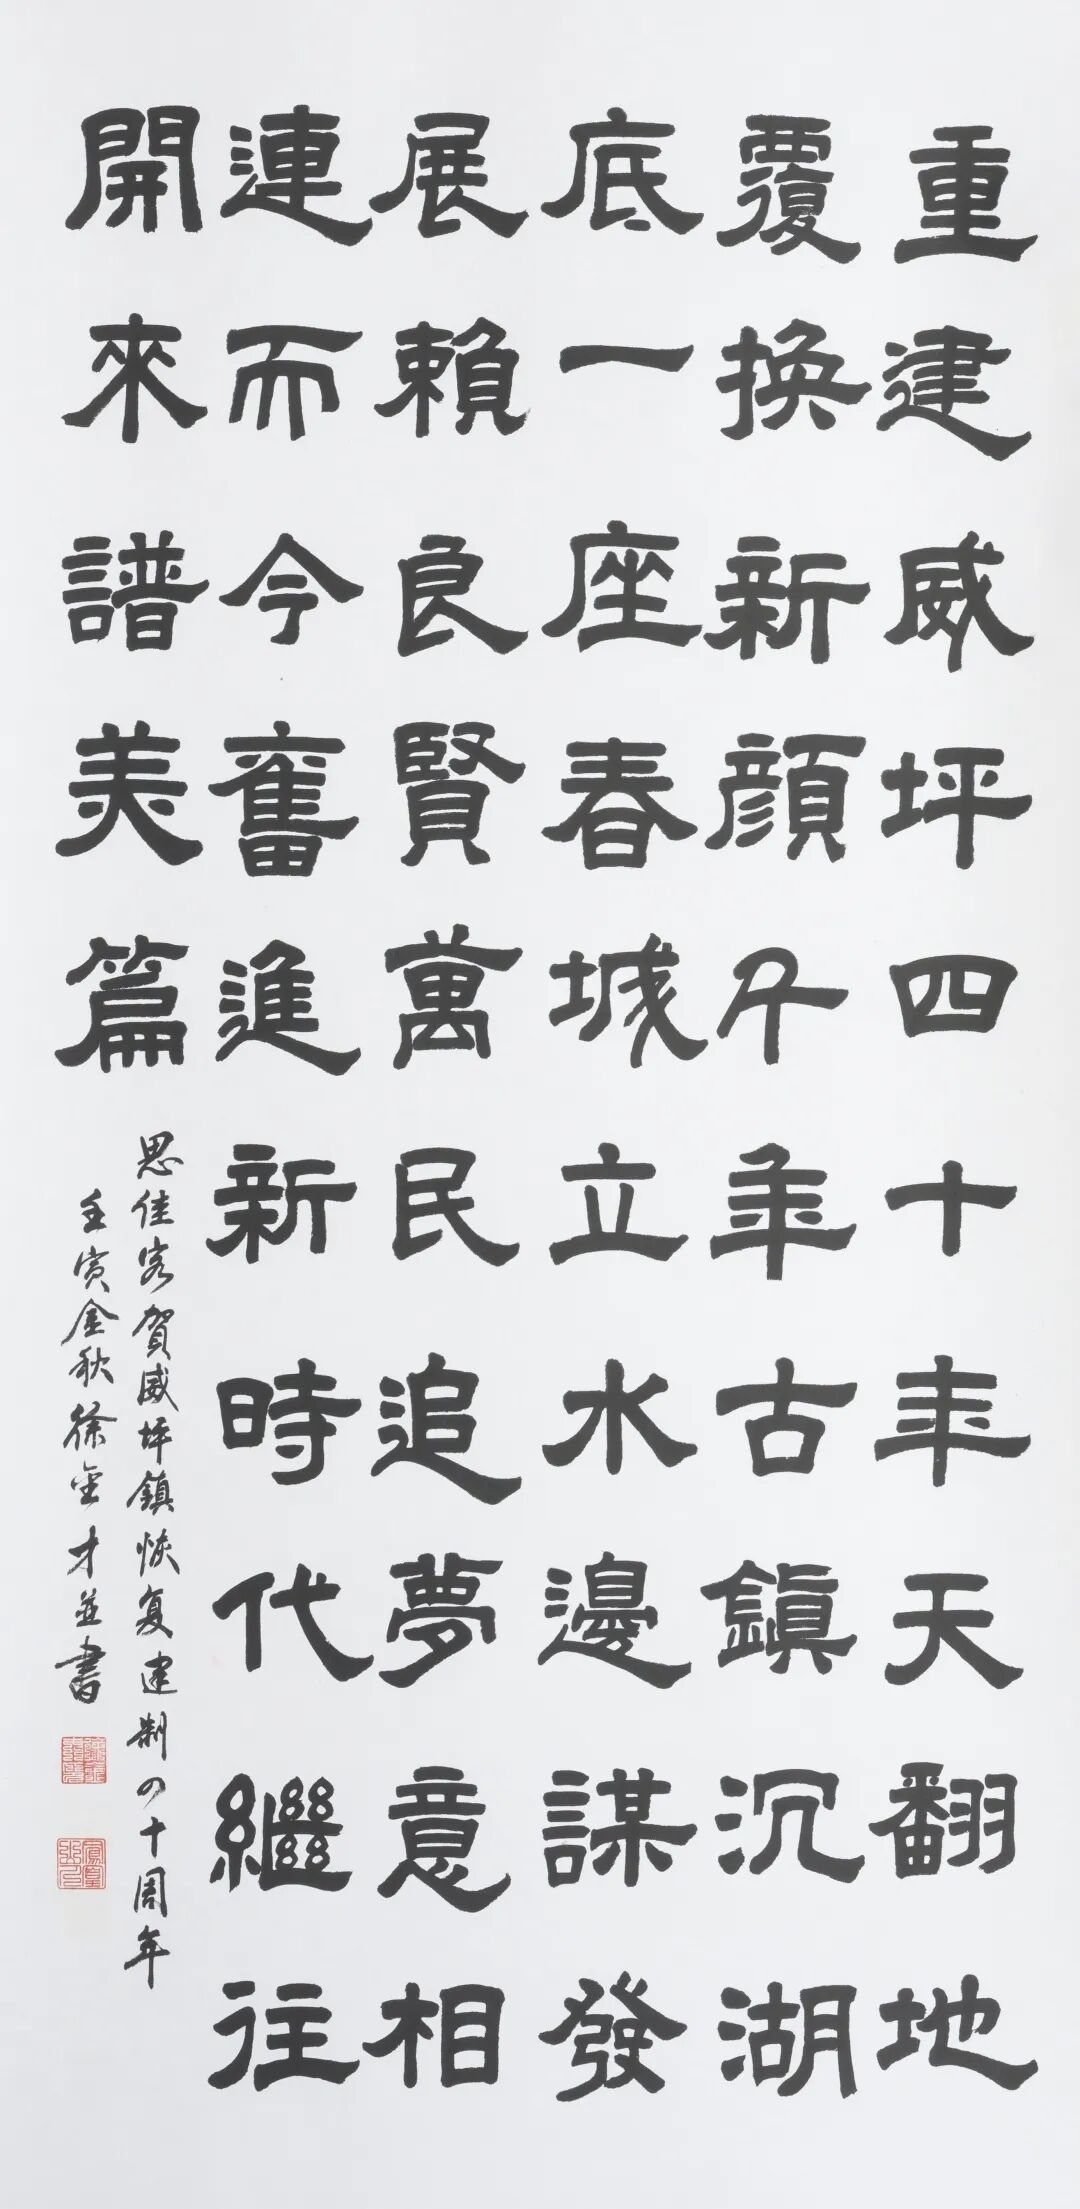 重建威坪四十年天翻地
覆換新顏千年古鎮沉湖
底一座春城立水邊謀發
展賴良賢萬民追夢意相
連而今奮進新時代繼往
開來譜美篇
思佳客賀威坪鎮恢复建制四十周年
壬寅金秋徐金才並書